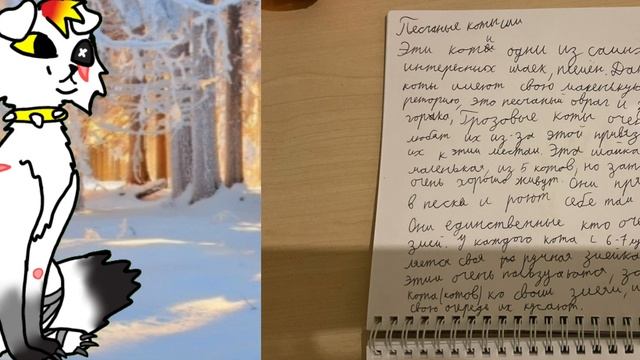 Песчаные коты
Эти коты и одни из самих
интересних шаек, племён. Дан
коты имеют свою маленькую
реторию, это песчаный овраг и
Грозовые коты оче
любят их из-за этой привяз
их к этим местам. Эта шайка
маленькая, из 5 котов, но зат
очень хорошо живут. Они пря
в песке и роют себе там
Они единственные кто оче
змей. У каждого кота с 6-7
ляется своя ручная змейка
этим очень пользуются, за
кота (котов) ко своим змеям, и
свою очередь их кусают.